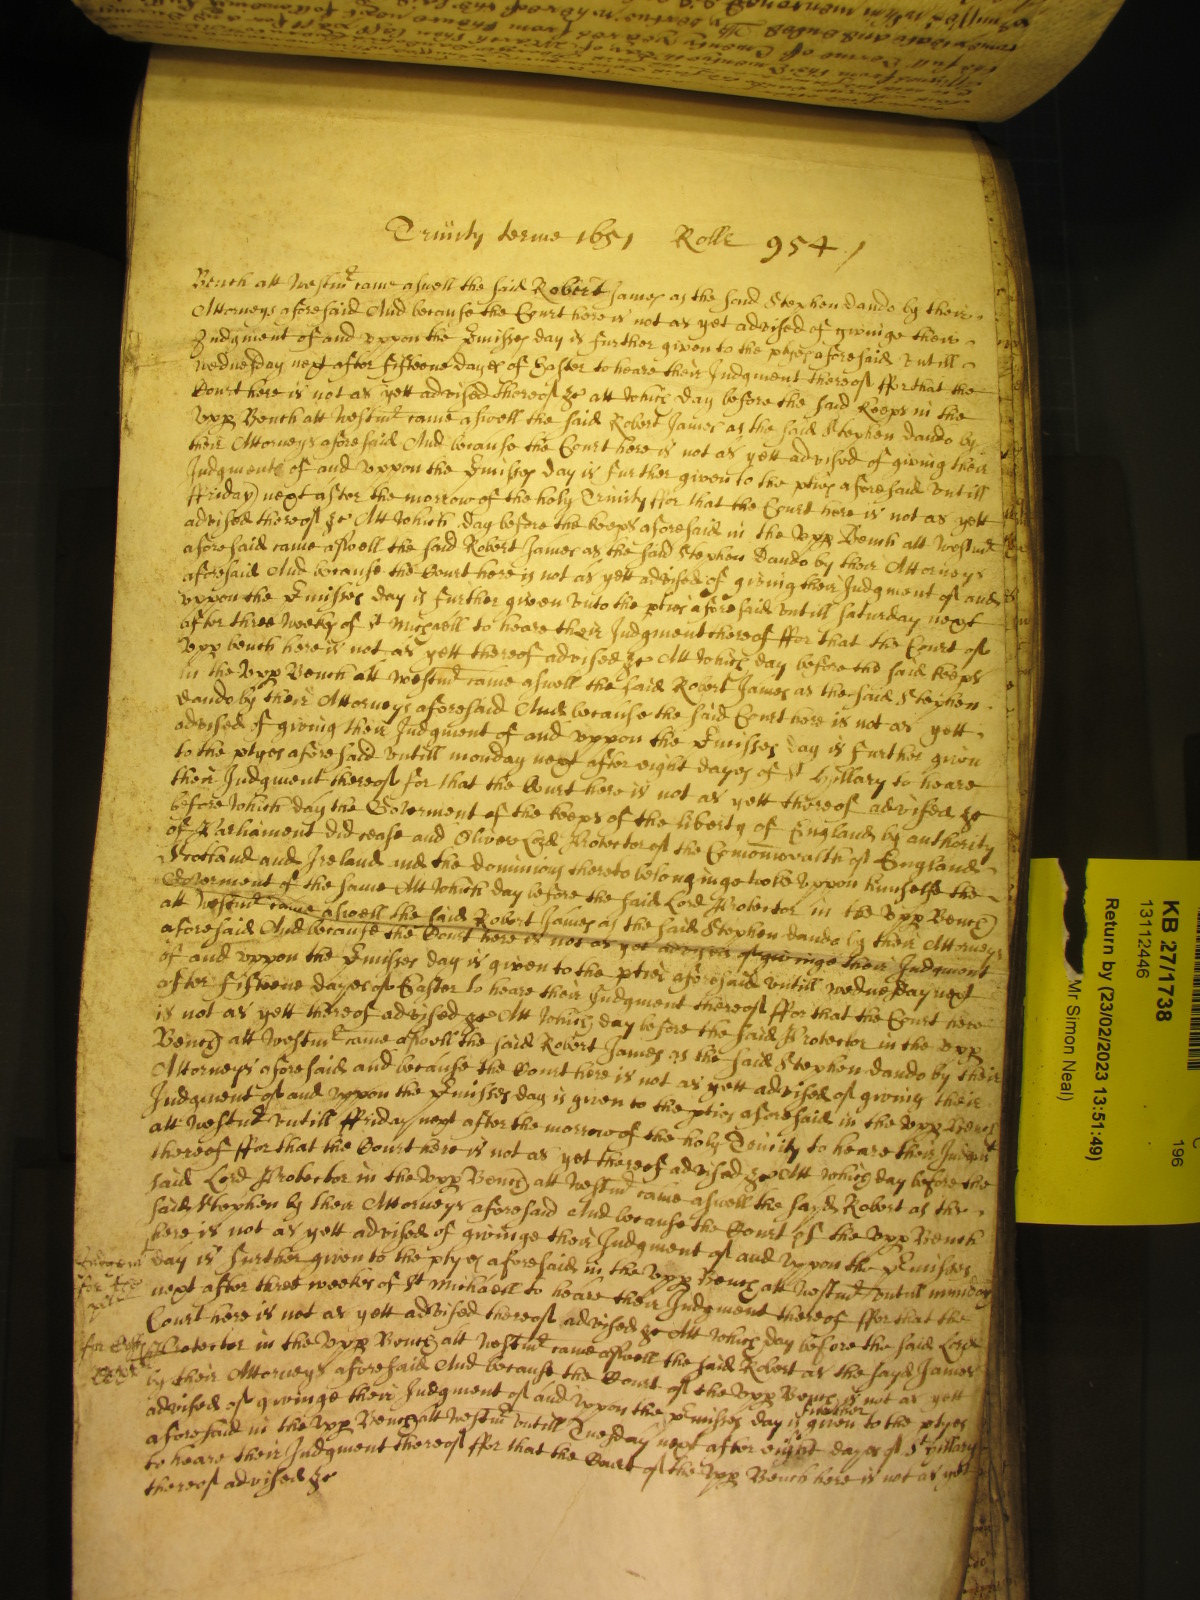 Trinity terme 1651 Rolle 954
Bench att Westmr came aswell the said Robert James as the said Stephen Dando by their
Attorneys aforesaid And because the Court here is not as yet advised of givinge their
Judgment of and uppon the Pmisses day is further given to the ptyes aforesaid untill
Wednesday next after fifteene dayes of Easter to heare their Judgment thereof ffor that the
Court here is not as yett advised thereof &c att which day before the said Keeps in the
Upp Bench att Westmr came aswell the said Robert James as the said Stephen Dando by
their Attorneys aforesaid And because the Court here is not as yett advised of giving their
Judgment of and uppon the Pmisses day is further given to the pties aforesaid untill
ffriday next after the morrow of the holy Trinity ffor that the Court here is not as yett
advised thereof &c Att which day before the Keeps aforesaid in the Upp Bench att Westmr
aforesaid came aswell the said Robert James as the said Stephen Dando by their Attorneys
aforesaid And because the Court here is not as yett advised of giving their Judgment of and
uppon the Pmisses day is further given unto the pties aforesaid untill Saturday next
after three weeks of St Michaell to heare their Judgment thereof ffor that the Court of
Upp bench here is not as yett thereof advised &c Att which day before the said Keeps
in the Upp Bench att Westmr came aswell the said Robert James as the said Stephen
Dando by their Attorneys aforesaid And because the said Court here is not as yett
advised of giving their Judgment of and uppon the Pmisses day is further given
to the ptyes aforesaid untill monday next after eight dayes of St Hyllary to heare
their Judgment thereof for that the Court here is not as yett thereof advised &c
before which day the Goverment of the keeps of the liberty of England by authority
of Parliament did cease and Oliver Lord Protector of the Comonwealth of England
Scotland and Ireland and the dominions thereto belonginge tooke uppon himselfe the
Goverment of the same Att which day before the said Lord Protector in the Upp Bench
att Westmr came aswell the said Robert James as the said Stephen Dando by their Attorneys
aforesaid And because the Court here is not as yet advised of givinge their Judgment
of and uppon the Pmisses day is given to the pties aforesaid untill wednesday next
after fifteene dayes of Easter to heare their Judgment thereof ffor that the Court here
is not as yett thereof advised &c Att which day before the said Protector in the Upp
Bench att Westmr came aswell the said Robert James as the said Stephen Dando by their
Attorneys aforesaid and because the Court here is not as yett advised of giving their
Judgment of and uppon the Pmisses day is given to the pties aforesaid in the Upp Bench
att Westmr untill ffriday next after the morrow of the holy Trinity to heare their Judgmt
thereof ffor that the Court here is not as yet thereof advised &c Att which day before the
said Lord Protector in the Upp Bench att Westmr came aswell the sayd Robert as the
said Stephen by their Attorneys aforesaid And because the Court of the Upp Bench
here is not as yett advised of givinge their Judgment of and uppon the Pmisses
day is further given to the ptyes aforesaid in the Upp Bench att Westmr untill monday
next after three weekes of St Michaell to heare their Judgment thereof ffor that the
Court here is not as yett advised thereof advised &c Att which day before the said Lord
Protector in the Upp Bench att Westmr came aswell the said Robert as the sayd James
by their Attorneys aforesaid And because the Court of the Upp Bench is not as yett
advised of givinge their Judgment of and uppon the Pmisses day is further given to the ptyes
aforesaid in the Upp Bench att Westmr untill Tuesday next after eight dayes of St Hillary
to heare their Judgment thereof ffor that the Court of the Upp Bench here is not as yett
thereof advised &c
KB 27/1738
13112446
196
Return by (23/02/2023 13:51:49)
Mr Simon Neal)